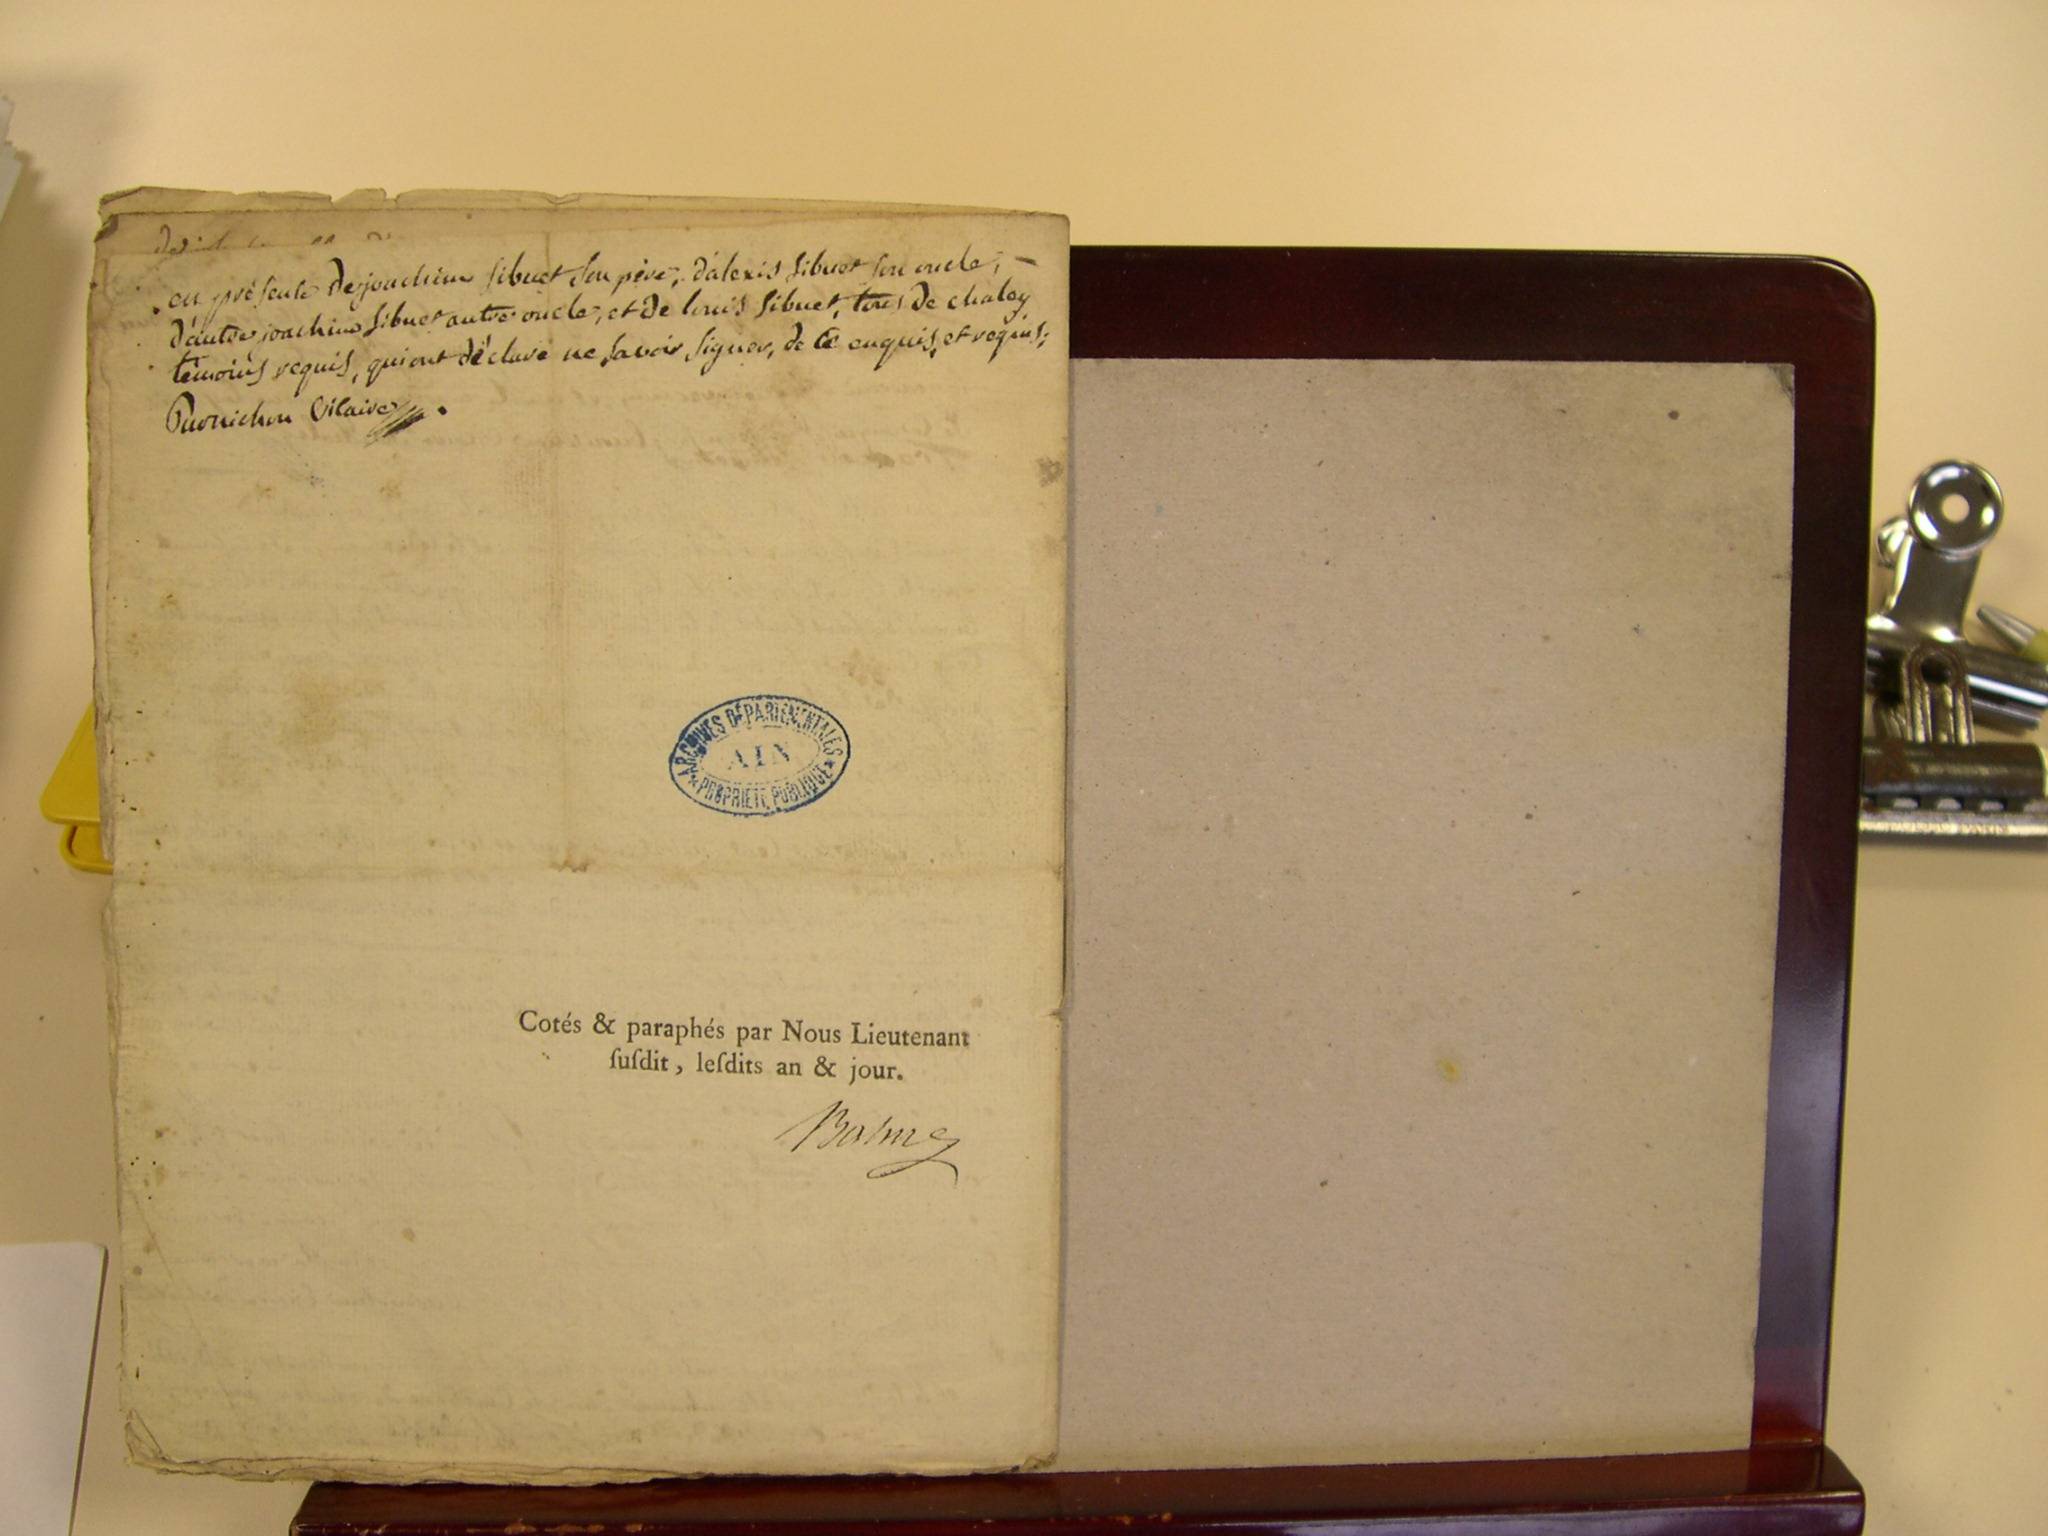 en présence de joachim sibuet son père, d'alexis sibuet son oncle,
d'autre joachim sibuet autre oncle, et de louis sibuet, tous de chaley
témoins requis, qui ont déclaré ne savoir signer, de ce enquis et requis;
vicaire
ARCHIVES DÉPARTEMENTALES
AIN
PROPRIÉTÉ PUBLIQUE
Cotés & paraphés par Nous Lieutenant
ſuſdit, leſdits an & jour.